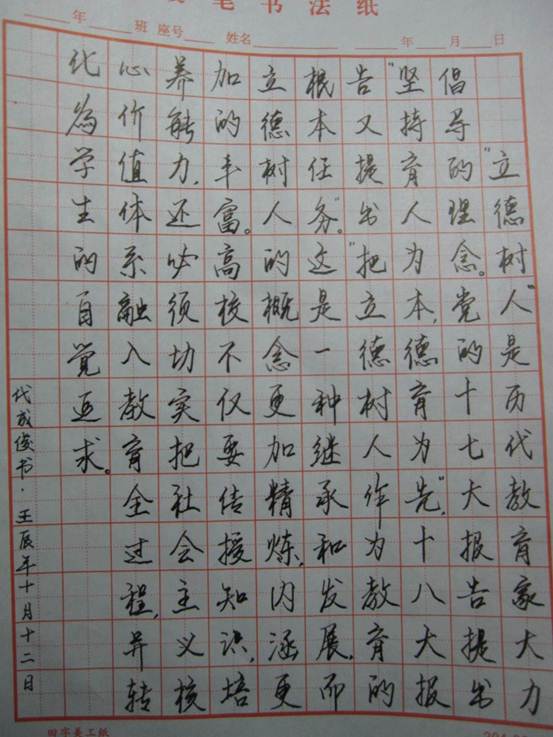 笔书法纸
年 班 座号 姓名 年 月 日
“立德树人”是历代教育家大力
倡导的理念。党的十七大报告提出
“坚持育人为本,德育为先”,十八大报
告又提出“把立德树人作为教育的
根本任务”。这是一种继承和发展,而
立德树人的概念更加精炼,内涵更
加的丰富。高校不仅要传授知识,培
养能力,还必须切实把社会主义核
心价值体系融入教育全过程,并转
化为学生的自觉追求。
代成俊书·壬辰年十月十二日